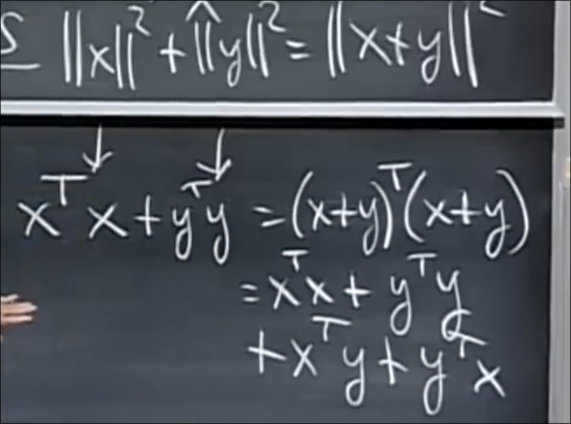 S ||x||² + ||y||² = ||x+y||²
xᵀx + yᵀy = (x+y)ᵀ(x+y)
= xᵀx + yᵀy
+ xᵀy + yᵀx